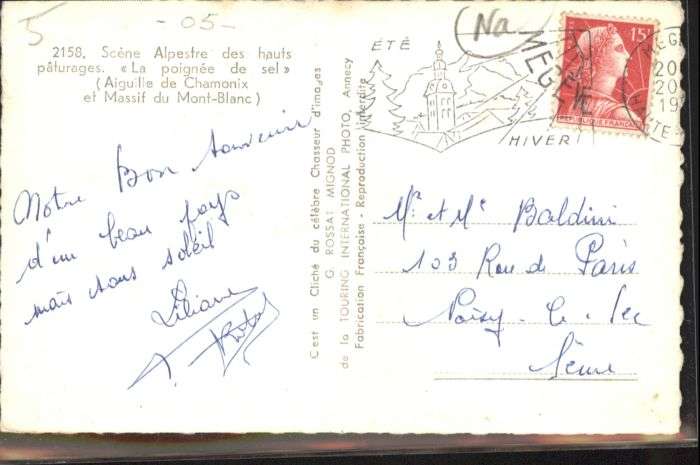 5
- 05 -
Na
2158. Scène Alpestre des hauts
pâturages. «La poignée de sel»
(Aiguille de Chamonix
et Massif du Mont-Blanc)
Notre Bon souvenir
d'un beau pays
mais sans soleil
Liliane
C'est un Cliché du célèbre Chasseur d'images
G. ROSSAT MIGNOD
de la TOURING INTERNATIONAL PHOTO, Annecy
Fabrication Française - Reproduction interdite
ÉTÉ
MEGÈVE
HIVER
15F
REPUBLIQUE FRANÇAISE
20
20
19
HAUTE
Mr et Me Baldini
103 Rue de Paris
Noisy-le-Sec
Seine